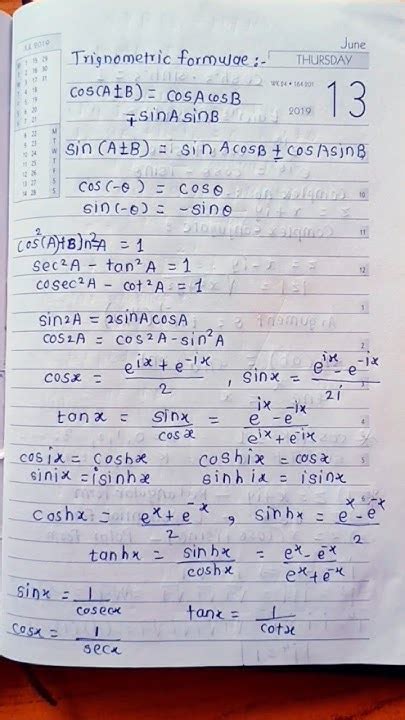 JUL 2019
June
Trignometric formulae :-
THURSDAY
2019
13
cos(A±B) = cosAcosB
∓sinAsinB
sin(A±B) = sinAcosB ± cosAsinB
cos(-θ) = cosθ
sin(-θ) = -sinθ
= 1
sec²A - tan²A = 1
cosec²A - cot²A = 1
sin2A = 2sinAcosA
cos2A = cos²A - sin²A
cosx = (e^ix + e^-ix)/2 , sinx = (e^ix - e^-ix)/2i
tanx = sinx/cosx = (e^ix - e^-ix)/(e^ix + e^-ix)
cosix = coshx coshix = cosx
sinix = isinhx sinhix = isinx
coshx = (e^x + e^-x)/2 , sinhx = (e^x - e^-x)/2
tanhx = sinhx/coshx = (e^x - e^-x)/(e^x + e^-x)
sinx = 1/cosecx tanx = 1/cotx
cosx = 1/secx